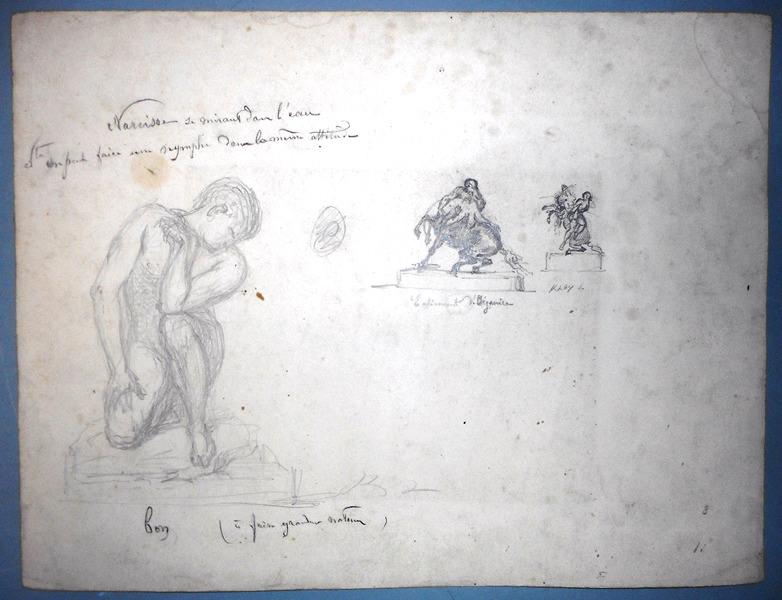 Narcisse se mirant dans l'eau
on peut faire une nymphe dans la même attitude
L'enlèvement de Déjanire
bon (à faire grandeur nature)